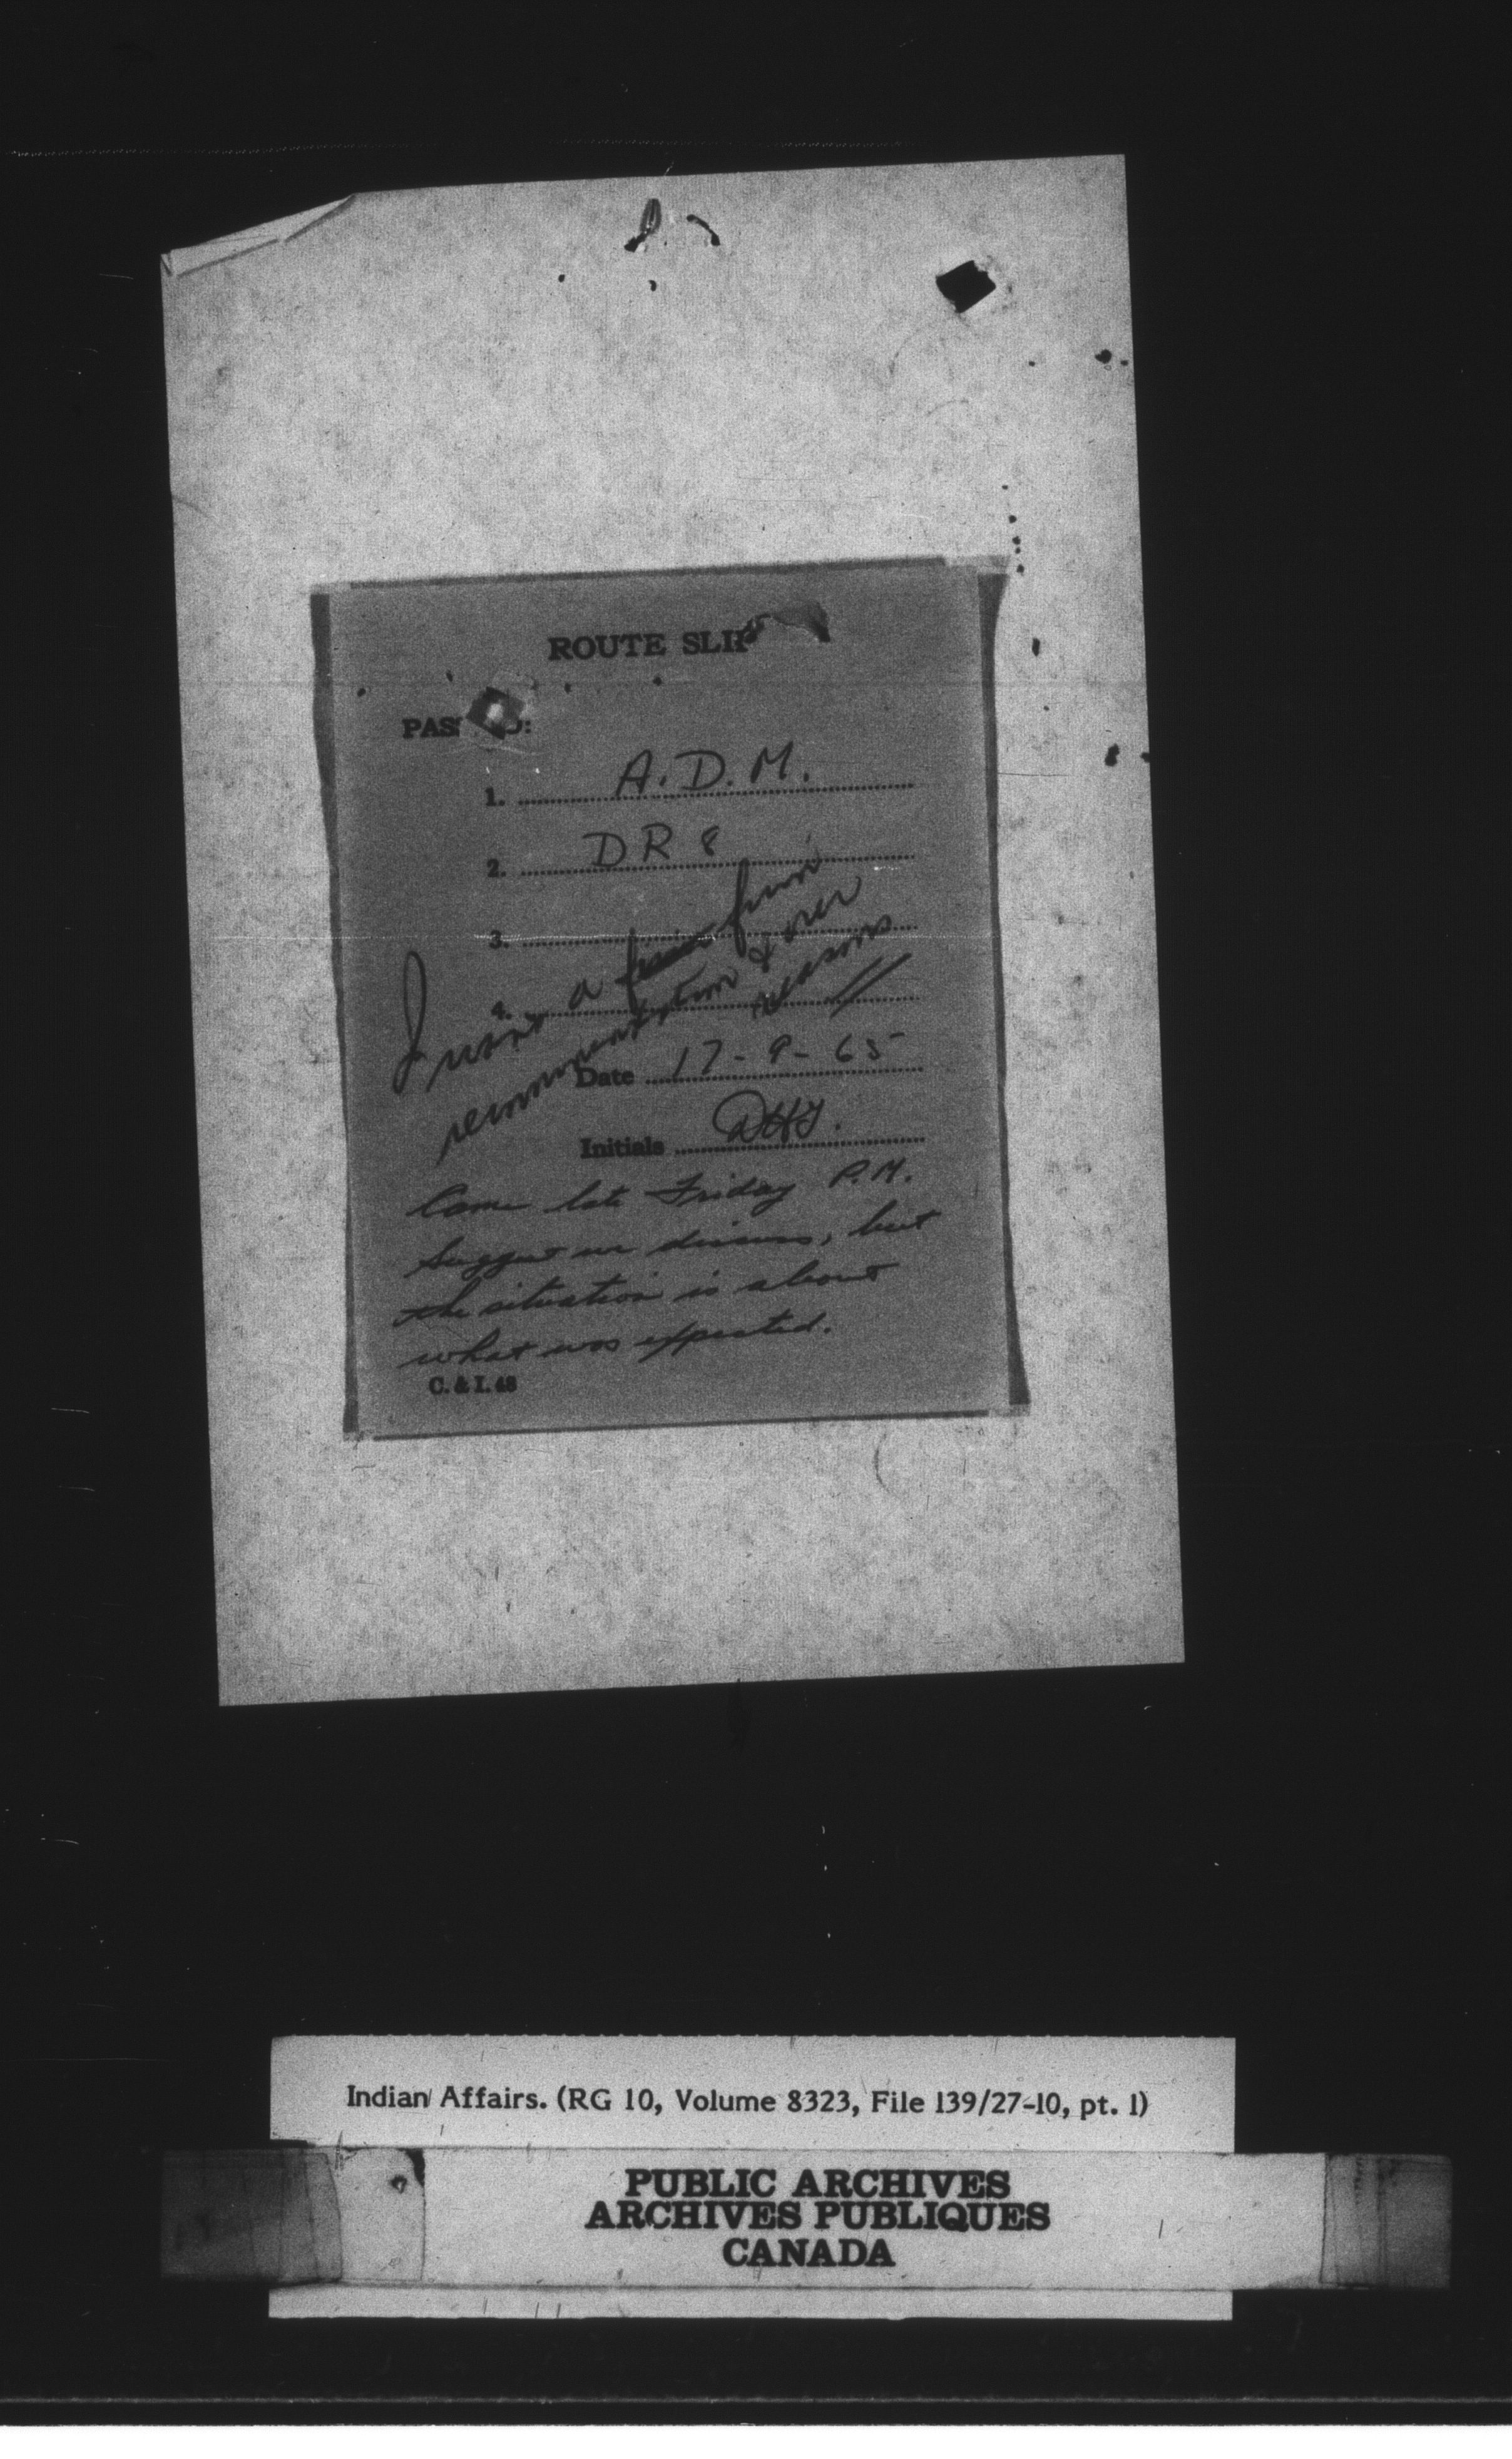 ROUTE SLIP
PASS TO:
1. A.D.M.
2. D R 8
3.
4.
I want a firm
recommendation & over
reasons
Date 17-9-65
Initials
Came late Friday P.M.
Suggest we discuss, but
the situation is about
what was expected.
C. & I. 48
Indian Affairs. (RG 10, Volume 8323, File 139/27-10, pt. 1)
PUBLIC ARCHIVES
ARCHIVES PUBLIQUES
CANADA